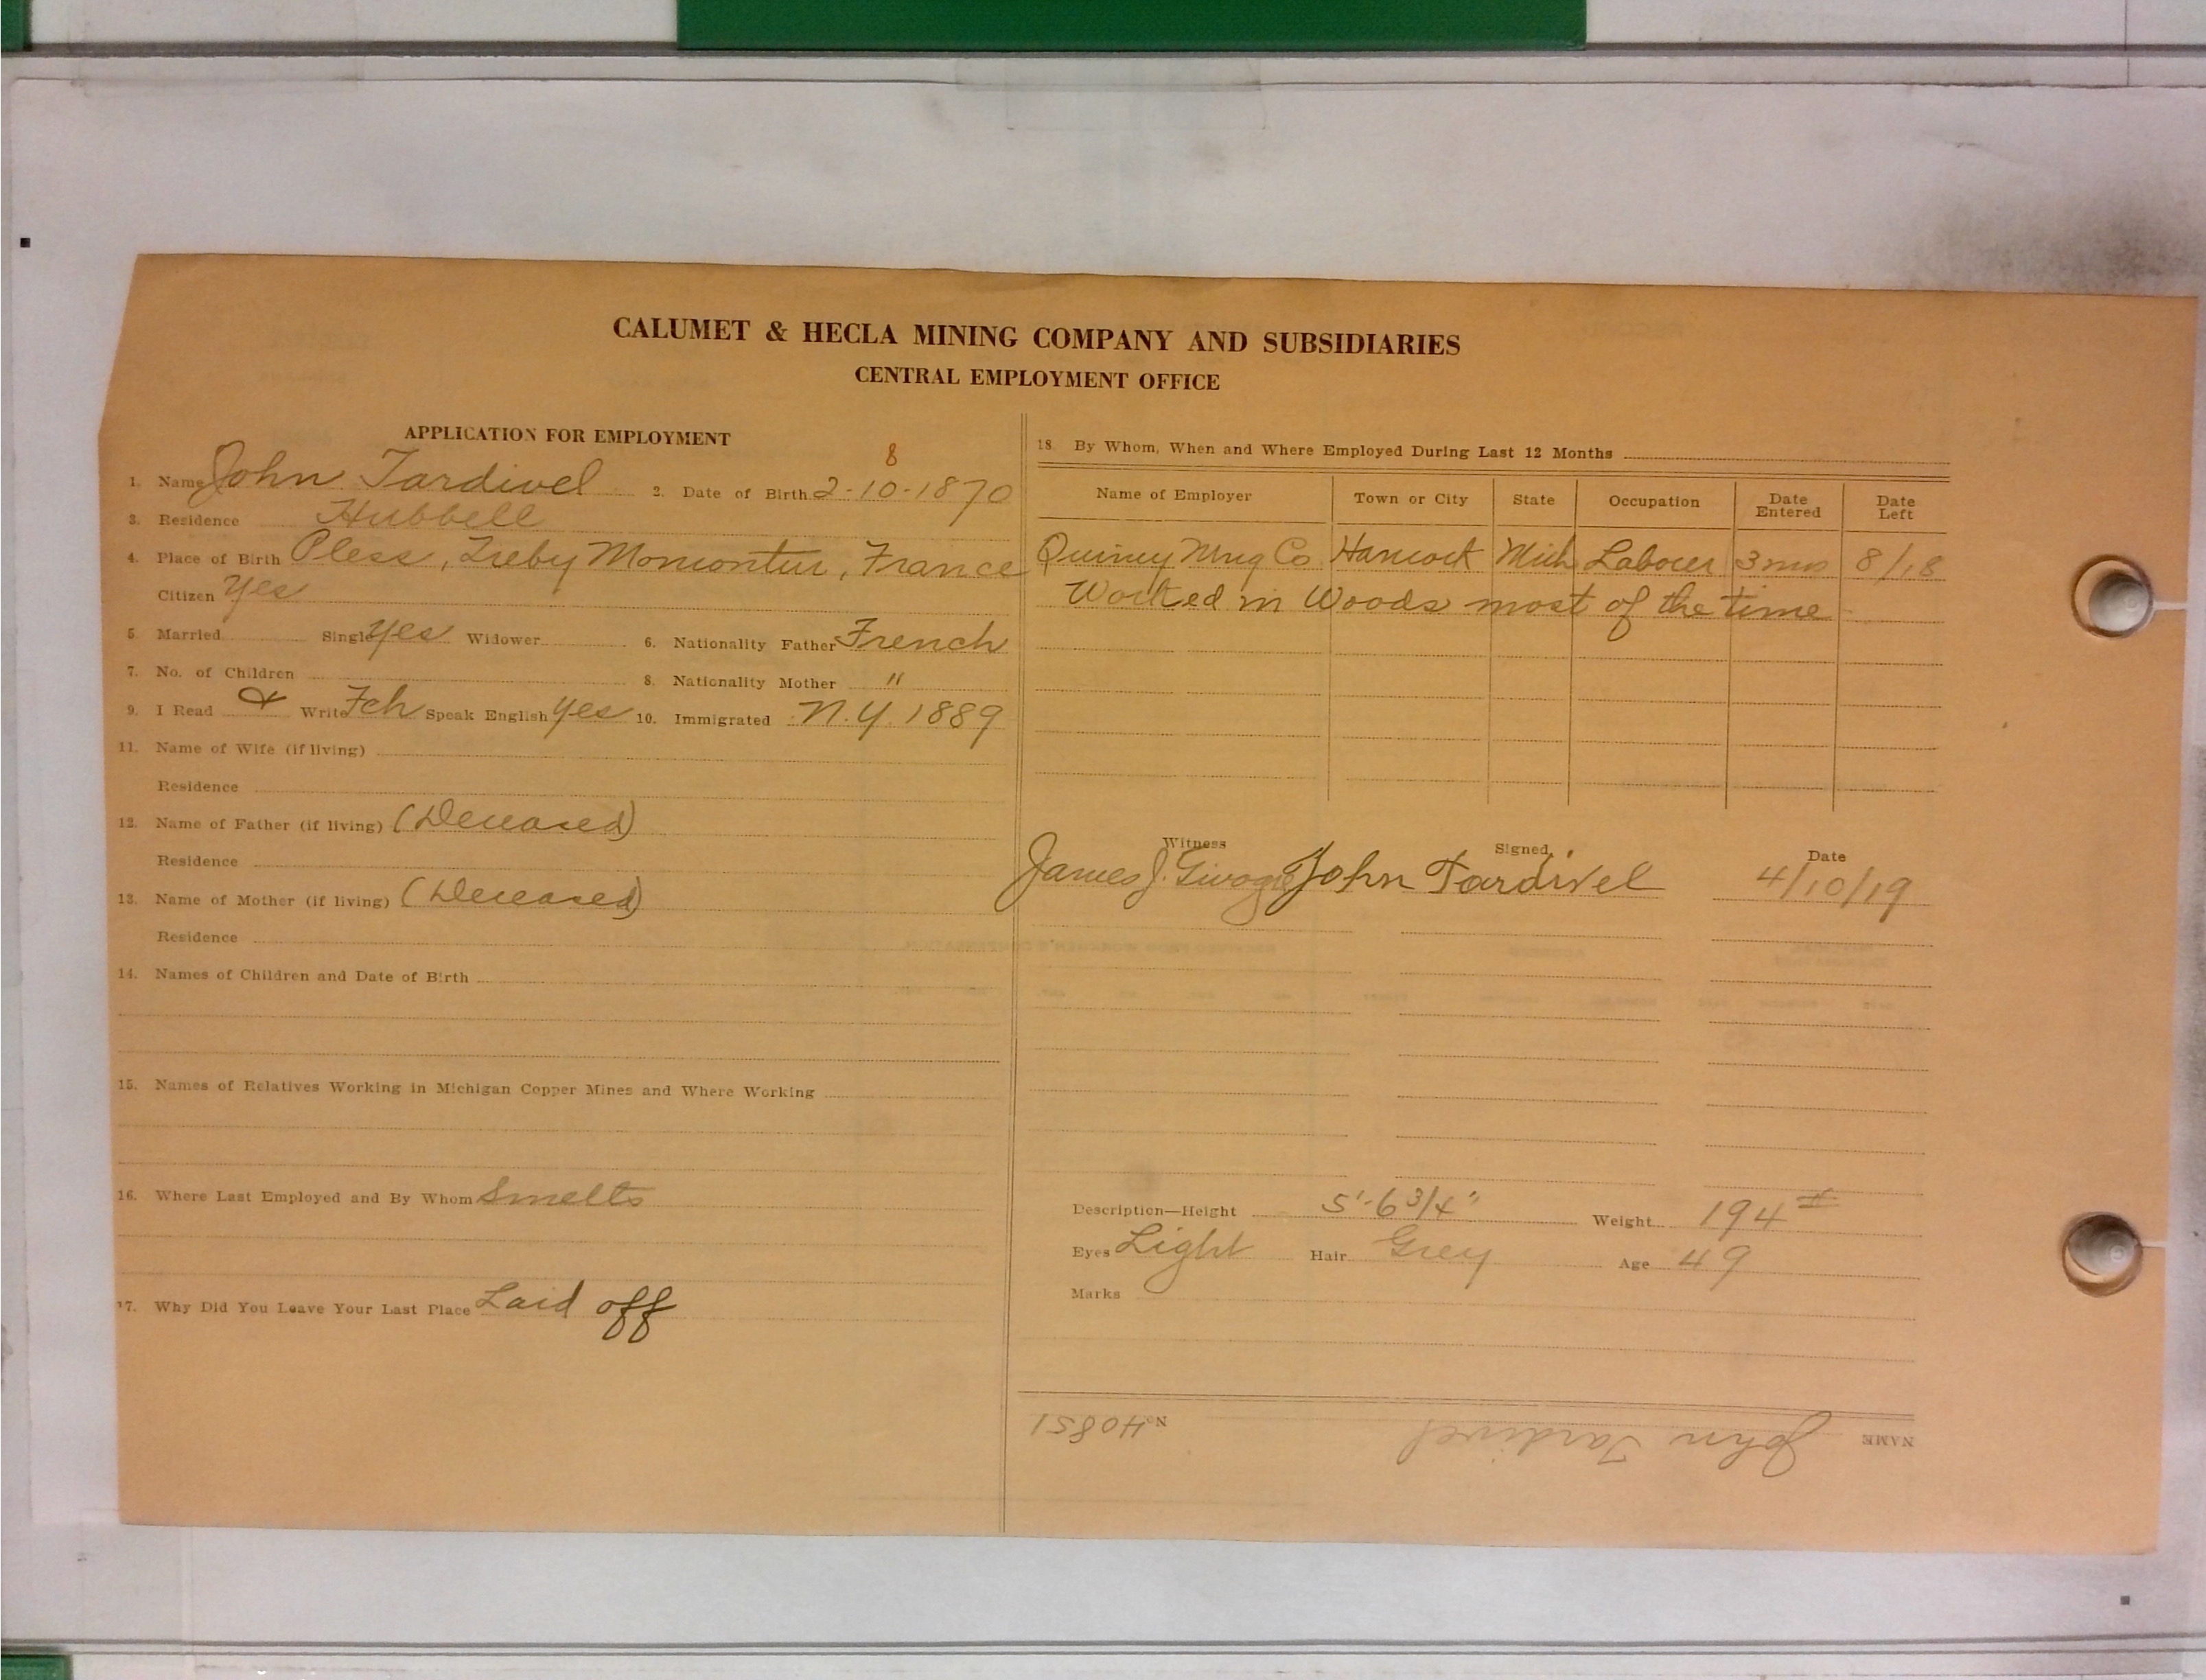 CALUMET & HECLA MINING COMPANY AND SUBSIDIARIES
CENTRAL EMPLOYMENT OFFICE
APPLICATION FOR EMPLOYMENT
8
1. Name John Tardivel 2. Date of Birth 2-10-1870
3. Residence Hubbell
4. Place of Birth Pless, Treby Momontur, France
Citizen Yes
5. Married Single Yes Widower 6. Nationality Father French
7. No. of Children 8. Nationality Mother "
9. I Read & Write Fch Speak English Yes 10. Immigrated N.Y. 1889
11. Name of Wife (if living)
Residence
12. Name of Father (if living) (Deceased)
Residence
13. Name of Mother (if living) (Deceased)
Residence
14. Names of Children and Date of Birth
15. Names of Relatives Working in Michigan Copper Mines and Where Working
16. Where Last Employed and By Whom Smelts
17. Why Did You Leave Your Last Place Laid off
18. By Whom, When and Where Employed During Last 12 Months
Name of Employer Town or City State Occupation Date Entered Date Left
Quincy Mng Co Hancock Mich Laborer 3 mos 8/18
Worked in Woods most of the time
Witness Signed Date
James J. John Tardivel 4/10/19
Description—Height 5'-6 3/4" Weight 194 #
Eyes Light Hair Grey Age 49
Marks
NAME John Tardivel No. 40851